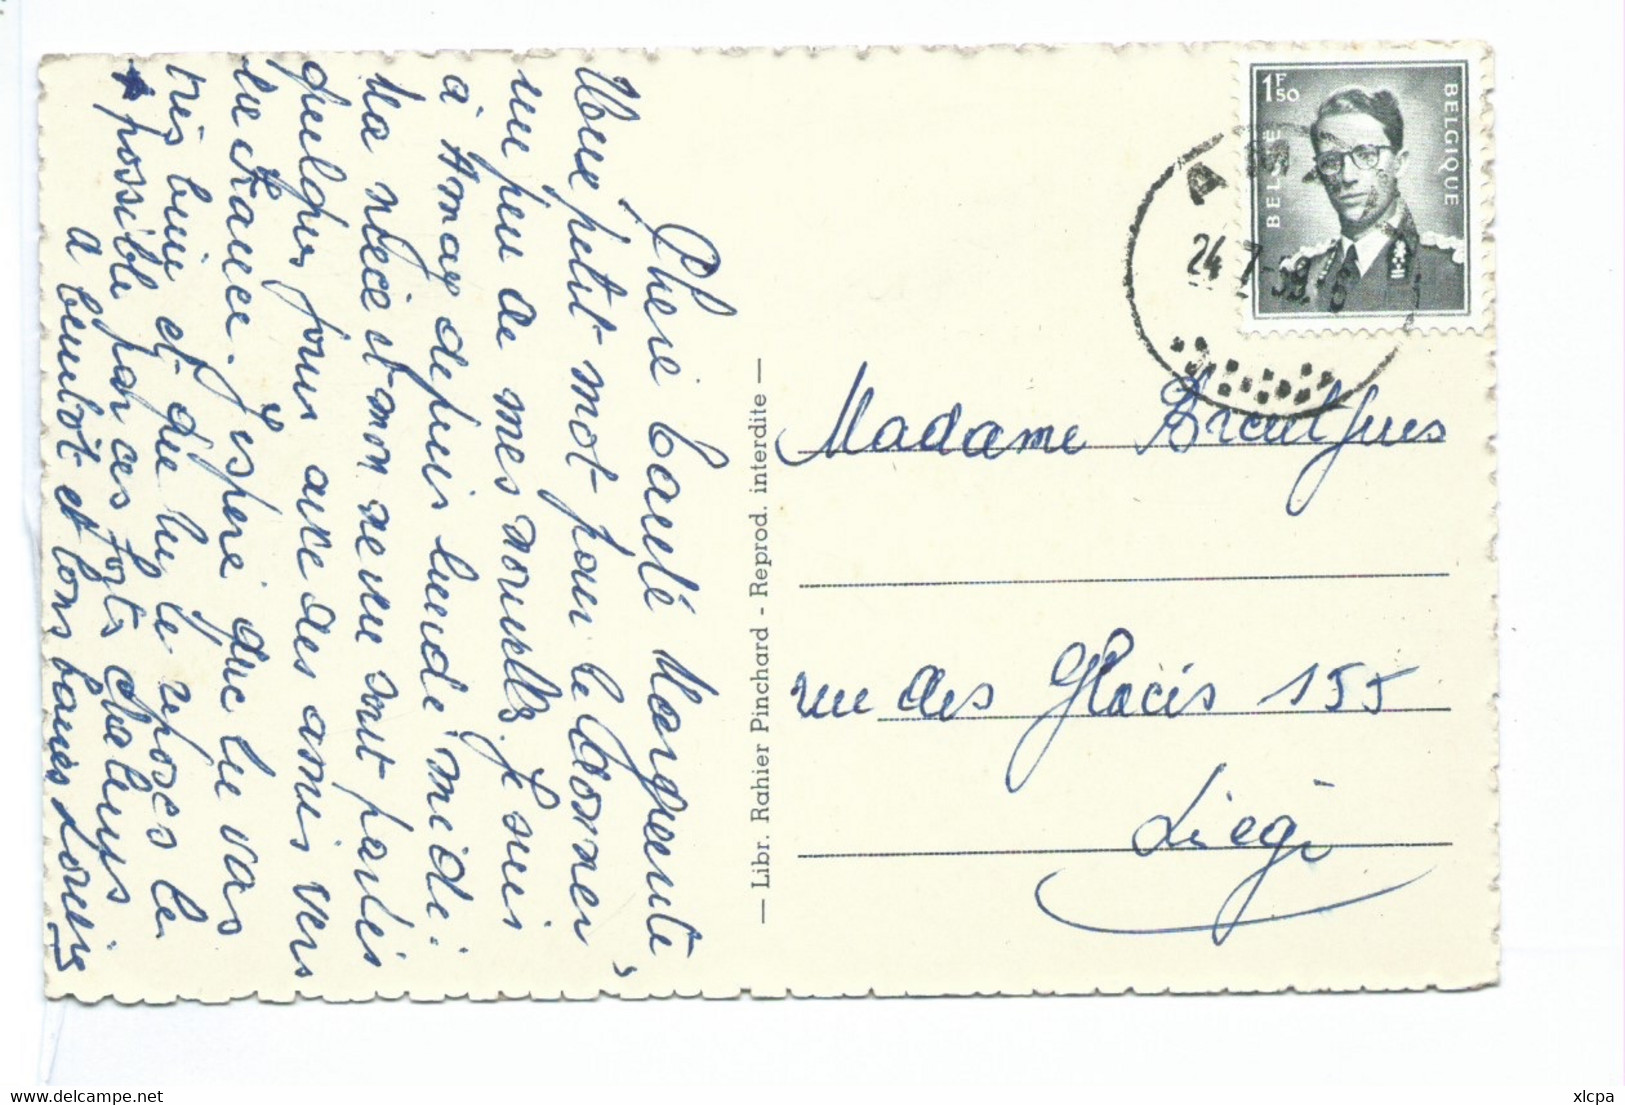 Chère tante Marguerite,
Une petit mot pour te donner
un peu de mes nouvelles. Je suis
à Amay depuis lundi midi.
Ma nièce et mon neveu sont partis
quelques jours avec des amis vers
la France. J'espère que tu vas
très bien et que tu te reposes le
+ possible par ces forts chaleurs
à bientôt et bons baisers Louis
— Libr. Rahier Pinchard - Reprod. interdite —
1F50
BELGIË
BELGIQUE
24-7-59
Madame
rue des Glacis 155
Liège
xlcpa
www.delcampe.net